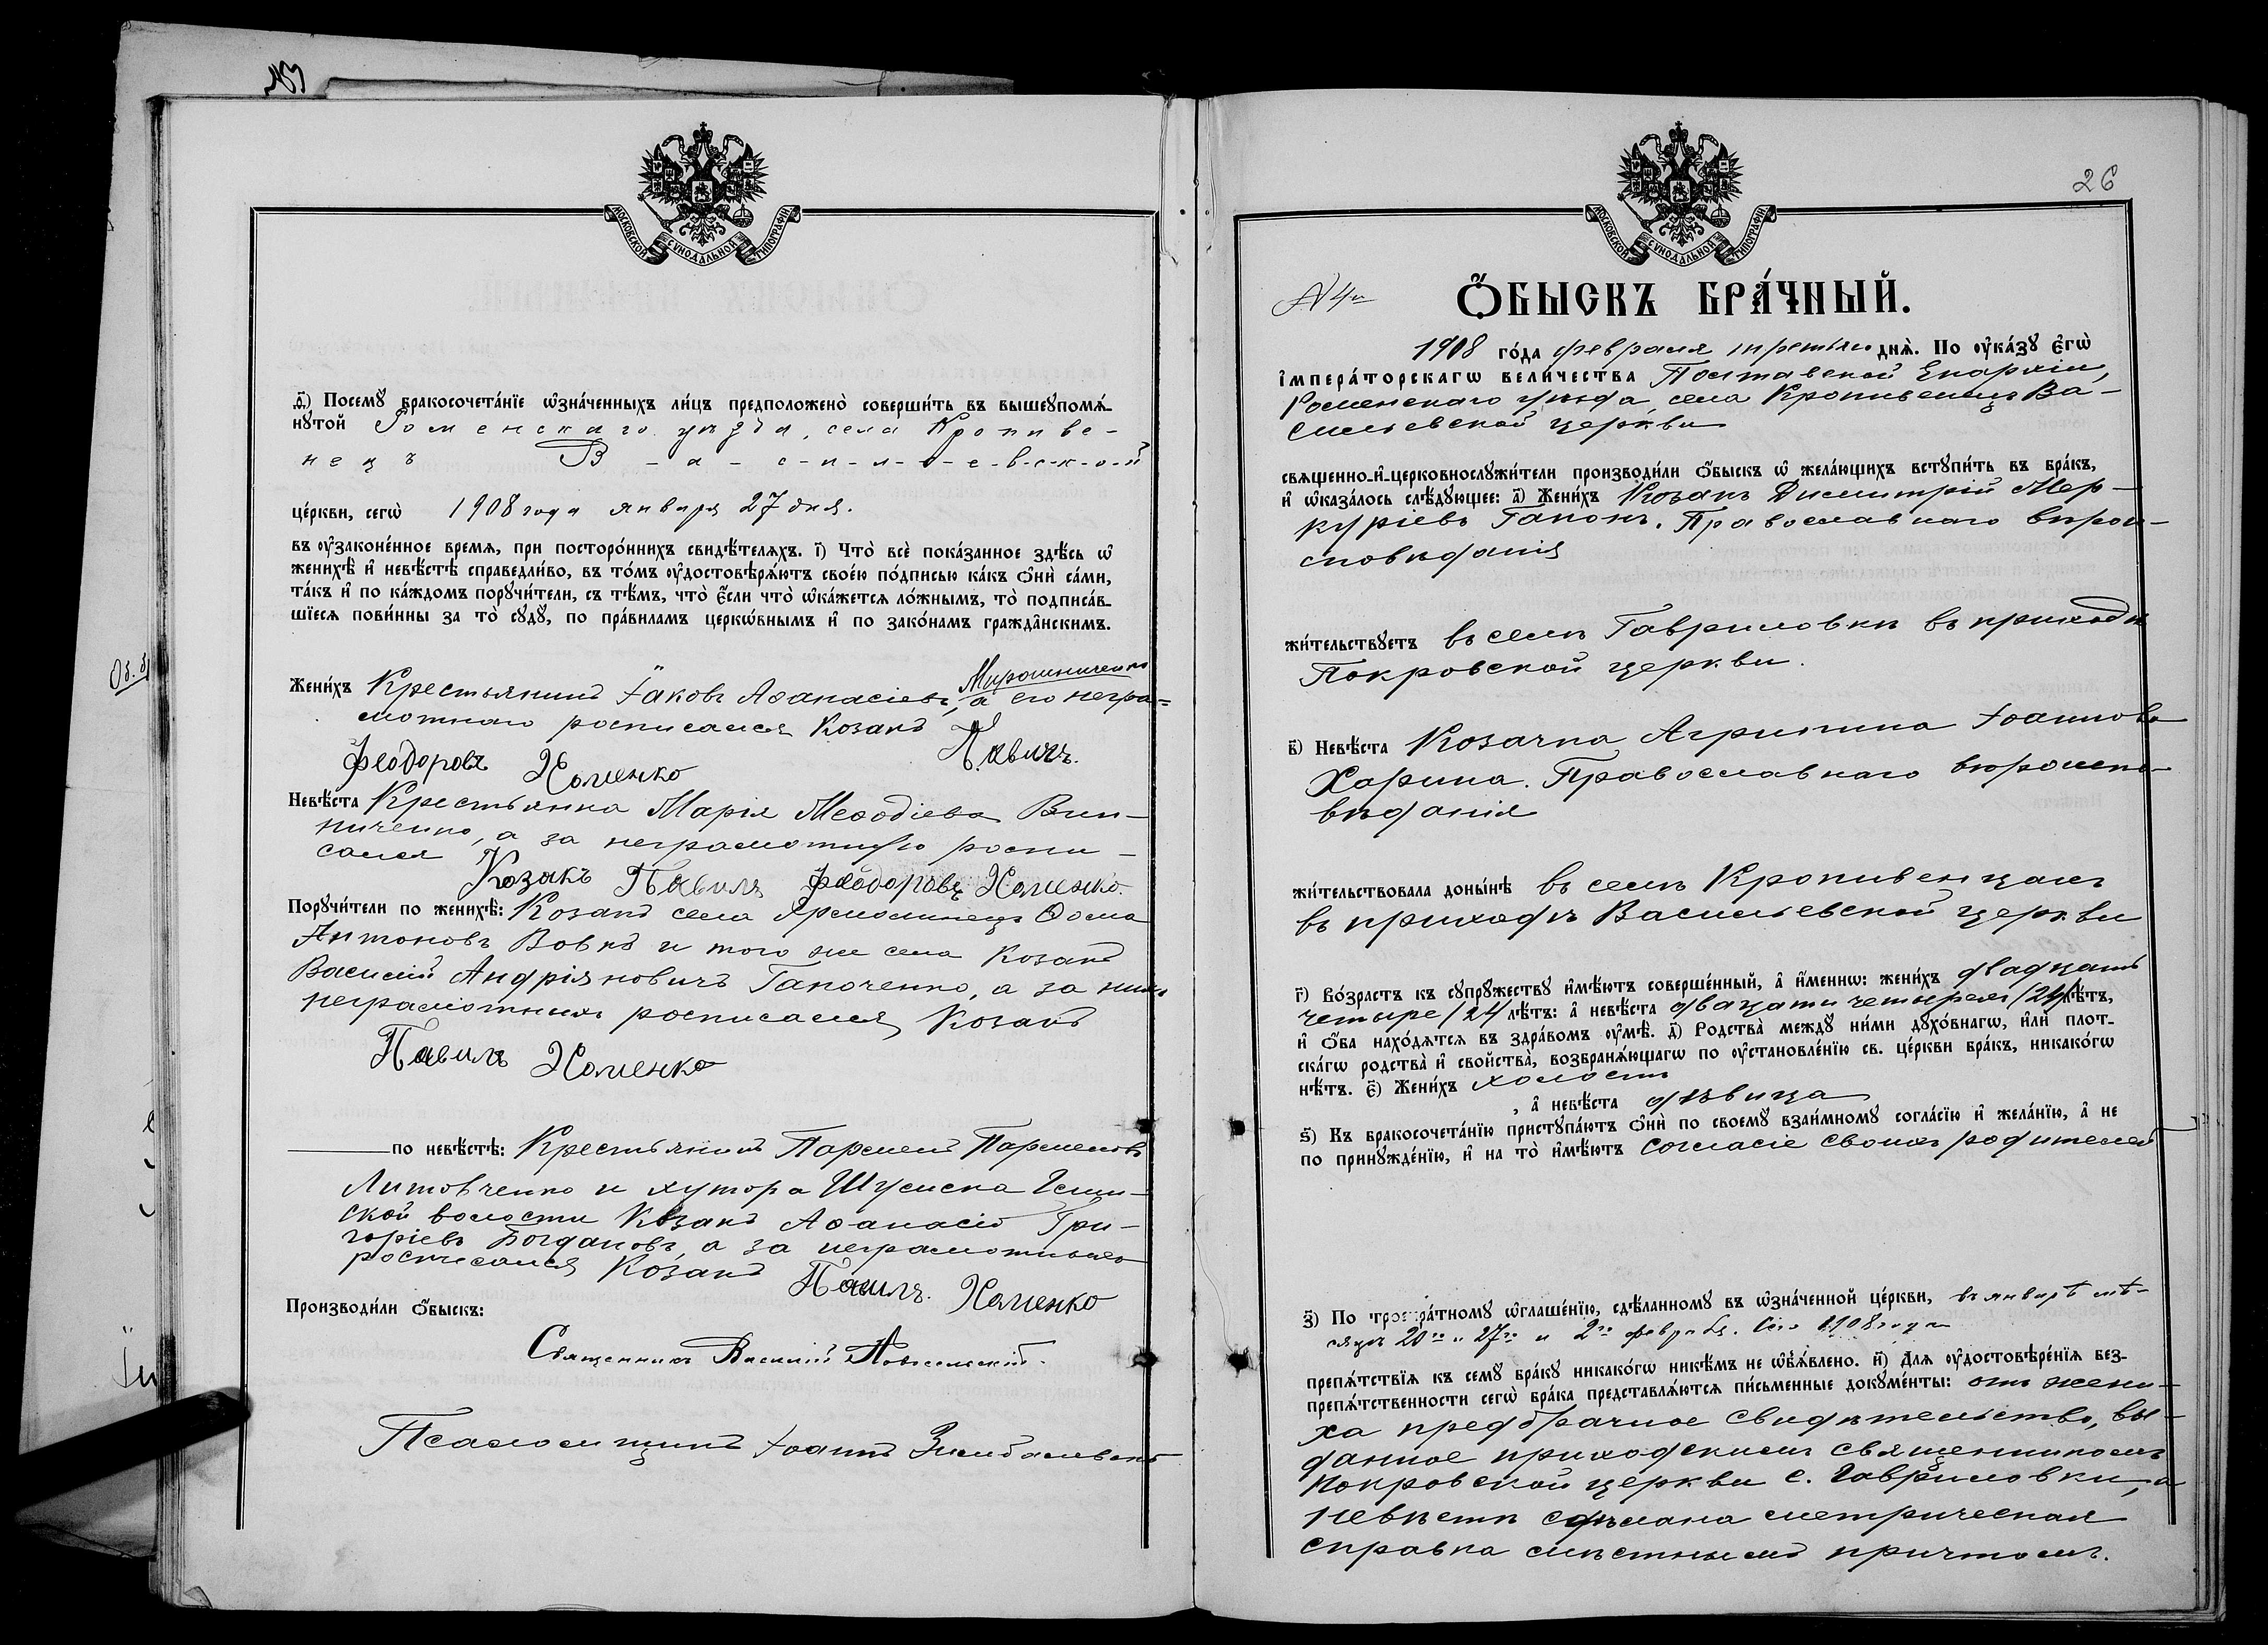 МОСКОВСКОЙ СѴНОДАЛЬНОЙ ТИПОГРАФІИ
д҃і) Посемꙋ бракосочета́нїе ѡ҆зна́ченныхъ ли́цъ предположено̀ соверши́ть въ вышеꙋпомѧ́-
нꙋтой Роменскаго уѣзда, села Кропиве-
нецъ В-а-с-и-л-ь-е-в-с-к-о-й
це́ркви, сегѡ̀ 1908 года января 27 дня.
въ ᲂу҆законе́нное времѧ, при посторо́ннихъ свидѣ́телѧхъ. і҃) Что̀ всѐ пока́занное здѣ́сь ѡ҆
женихѣ̀ и҆ невѣ́стѣ справедли́во, въ то́мъ ᲂу҆достовѣрѧ́ютъ свое́ю по́дписью ка́къ ѻ҆нѝ са́ми,
та́къ и҆ по ка́ждомъ порꙋчи́тели, съ тѣ́мъ, что̀ є҆́сли что̀ ѡ҆ка́жетсѧ ло́жнымъ, то̀ подписа́в-
шїесѧ пови́нны за то̀ сꙋдꙋ̀, по пра́виламъ церкѡ́внымъ и҆ по зако́намъ гражда̑нскимъ.
Жени́хъ Крестьянинъ Іаковъ Аѳанасіевъ Мирошниченко, а его негра-
мотнаго росписался Козакъ Павилъ
Феодоровъ Хоменко
Невѣ́ста Крестьянка Марія Меѳодіева Вин-
ниченко, а за неграмотную роспи-
сался Козакъ Павилъ Феодоровъ Хоменко.
Порꙋчи́тели по женихѣ̀: Козакъ села Ярмолинецъ Ѳома
Антоновъ Вовкъ и того же села Козакъ
Василій Андріяновичъ Гапоченко, а за нихъ
неграмотныхъ росписался Козакъ
Павилъ Хоменко
по невѣ́стѣ: Крестьянинъ Парменъ Парменовъ
Литовченко и хутора Шумска
ской волости Козакъ Аѳанасій Гри-
горіевъ Богдановъ, а за неграмотныхъ
росписался Козакъ Павилъ. Хоменко
Производи́ли ѻ҆́быскъ:
Священникъ Василій
Псаломщикъ Іоаннъ
26
МОСКОВСКОЙ СѴНОДАЛЬНОЙ ТИПОГРАФІИ
N 4й
Ѻ҆́БЫСКЪ БРА́ЧНЫЙ.
1908 го́да февраля третьяго днѧ̀. По ᲂу҆ка́зꙋ є҆гѡ̀
і҆мпера́торскагѡ вели́чества Полтавской Епархіи,
Роменскаго уѣзда, села Кропивенецъ Ва-
сильевской церкви
свѧщенно-и҆-церковнослꙋжи́тели производи́ли ѻ҆́быскъ ѡ҆ жела́ющихъ встꙋпи́ть въ бра́къ,
и҆ ѡ҆каза́лось слѣ́дꙋющее: а҃) Жени́хъ Козакъ Димитрій Мер-
куріевъ Гапонъ. Православнаго вѣрои-
сповѣданія
жи́тельствꙋетъ въ селѣ Гавриловкѣ въ приходѣ
Покровской церкви.
в҃) Невѣ́ста Козачка Агрипина Іоаннова
Харина. Православнаго вѣроиспо-
вѣданія
жи́тельствовала донынѣ въ селѣ Кропивенцахъ
въ приходѣ Васильевской церкви
г҃) Во́зрастъ къ сꙋпрꙋ́жествꙋ и҆мѣ́ютъ соверше́нный, а҆ и҆́меннѡ: жени́хъ двадцать
четыре /24/ лѣ́тъ: а҆ невѣ́ста двацати четырехъ /24/ лѣ́тъ,
и҆ ѻ҆́ба нахо́дѧтсѧ въ здра́вомъ ᲂу҆мѣ̀. д҃) Родства̀ междꙋ̀ ни́ми дꙋхо́внагѡ, и҆лѝ плот-
ска́гѡ родства̀ и҆ сво́йства̀, возбранѧ́ющагѡ по ᲂу҆становле́нїю св. це́ркви бра́къ, никако́гѡ
нѣ́тъ. є҃) Жени́хъ холостъ
, а҆ невѣ́ста дѣвица
ѕ҃) Къ бракосочета́нїю пристꙋпа́ютъ ѻ҆нѝ по своемꙋ̀ взаи́мномꙋ согла́сїю и҆ жела́нїю, а҆ не
по принꙋжде́нїю, и҆ на то̀ и҆мѣ́ютъ согласіе своихъ родителей
з҃) По троекра́тномꙋ ѡ҆глаше́нїю, сдѣ́ланномꙋ въ ѡ҆зна́ченной це́ркви, въ январѣ мѣ-
сяцѣ 20го и 27го и 2го февраля. Сего 1908 года
препѧ́тствїѧ къ семꙋ̀ бра́кꙋ никако́гѡ никѣ́мъ не ѡ҆б̾ѧ́влено. и҃) Длѧ ᲂу҆достовѣре́нїѧ без-
препѧ́тственности сегѡ̀ бра́ка представлѧ́ютсѧ пи́сьменные докꙋме́нты: отъ жени-
ха предбрачное свидѣтельство, вы-
данное приходскимъ священникомъ
Покровской церкви с. Гавриловки, а
невѣстѣ сдѣлана метрическая
справка мѣстнымъ причтомъ.